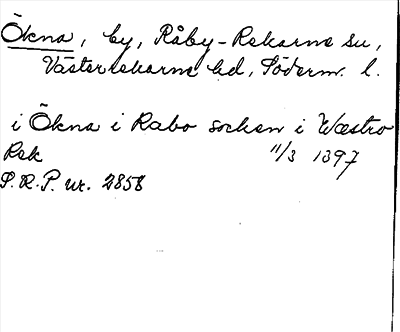 Ökna, by, Råby-Rekarne sn,
Västerrekarne hd, Söderm. l.
i Ökna i Rabo socken i Wæstro
Rek 11/3 1397
S.R.P. nr. 2858